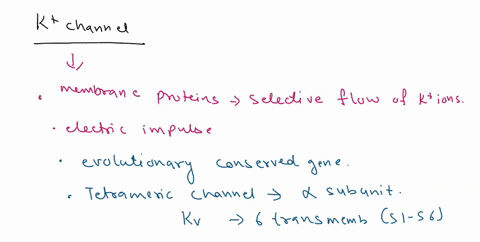 K+ channel
• membrane proteins → selective flow of K+ ions.
• electric impulse
• evolutionary conserved gene.
• Tetrameric channel → α subunit.
Kv → 6 transmemb (S1-S6)